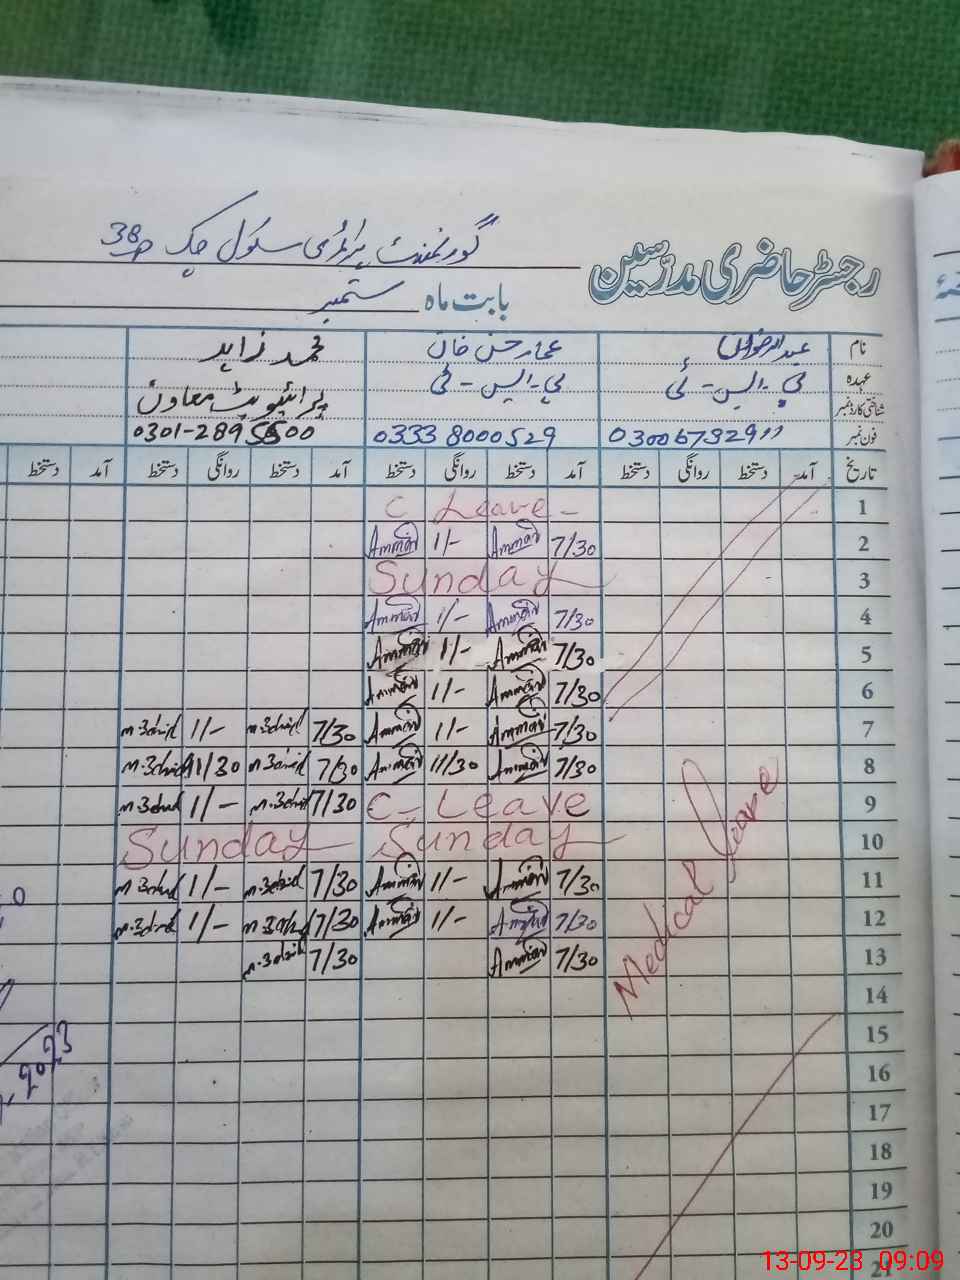 رجسٹر حاضری مدرسین
گورنمنٹ پرائمری سکول چک 38
بابت ماہ ستمبر
نام عبدالرضوان عمار حسن خان محمد زاہد
عہدہ پی-ایس-ٹی پی-ایس-ٹی پرائیویٹ معاون
شناختی کارڈ نمبر
فون نمبر 03006732911 0333 8000529 0301-2895500
تاریخ آمد دستخط روانگی دستخط آمد دستخط روانگی دستخط آمد دستخط روانگی دستخط آمد دستخط
1 C Leave
2 7/30 Ammar 1/- Ammar
3 Sunday
4 7/30 Ammar 1/- Ammar
5 7/30 Ammar 1/- Ammar
6 7/30 Ammar 1/- Ammar
7 7/30 Ammar 1/- Ammar 7/30 m.Zahid 1/- m.Zahid
8 7/30 Ammar 11/30 Ammar 7/30 m.Zahid 11/30 m.Zahid
9 C-Leave 7/30 m.Zahid 1/- m.Zahid
10 Sunday Sunday
11 7/30 Ammar 1/- Ammar 7/30 m.Zahid 1/- m.Zahid
12 7/30 Ammar 1/- Ammar 7/30 m.Zahid 1/- m.Zahid
13 7/30 Ammar 7/30 m.Zahid
Medical Leave
14
15
16
17
18
19
20
21
2023
13-09-23 09:09